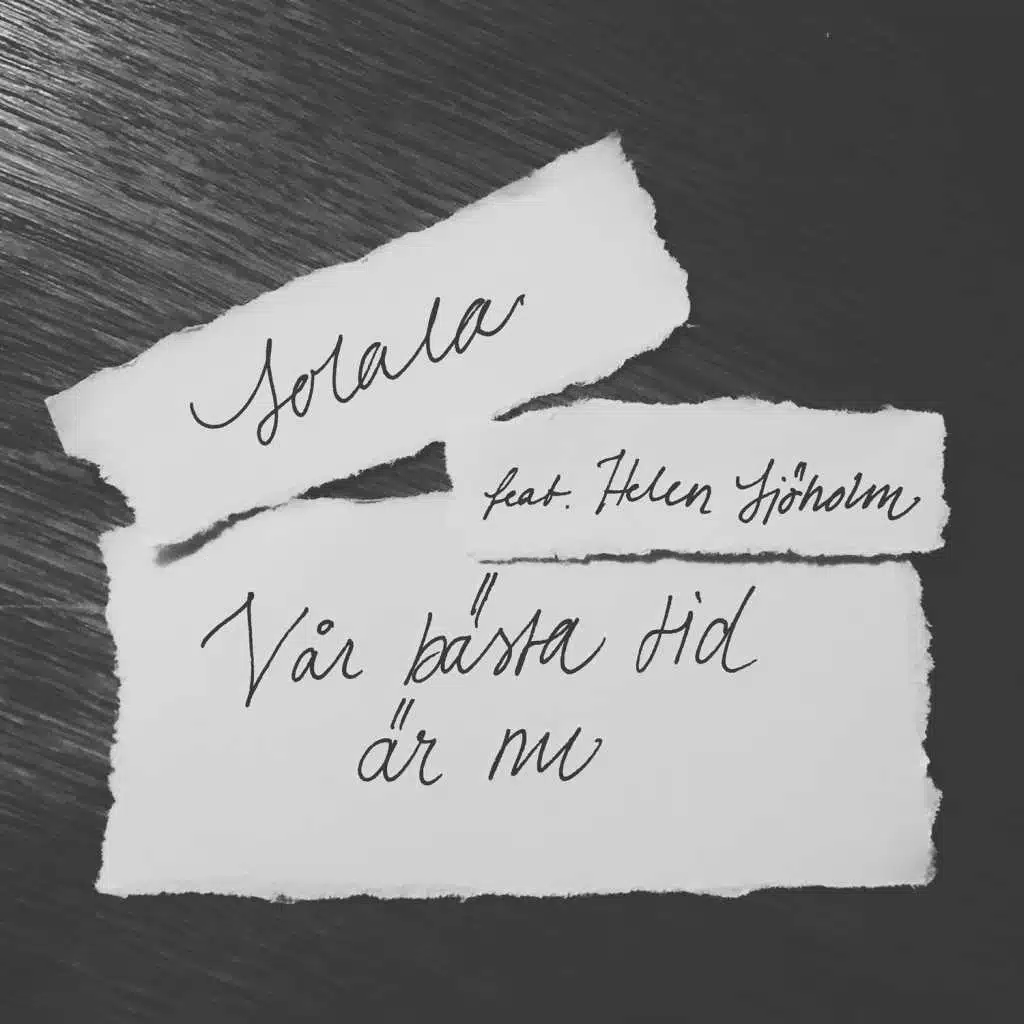 Solala
feat. Helen Sjöholm
Vår bästa tid
är nu